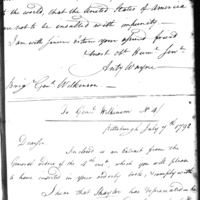 the world, that the United States of America
are not to be insulted with impunity.
I am with sincere esteem your affectionate friend
Most Obt Humle Servt
Anty Wayne
Brigr Genl Wilkinson
To Genl Wilkinson No 2
Pittsburgh July 7th 1792
Dear Sir
Inclosed is an Extract from the
General Orders of the 4th inst, which you will please
to have inserted in your orderly book, & comply with